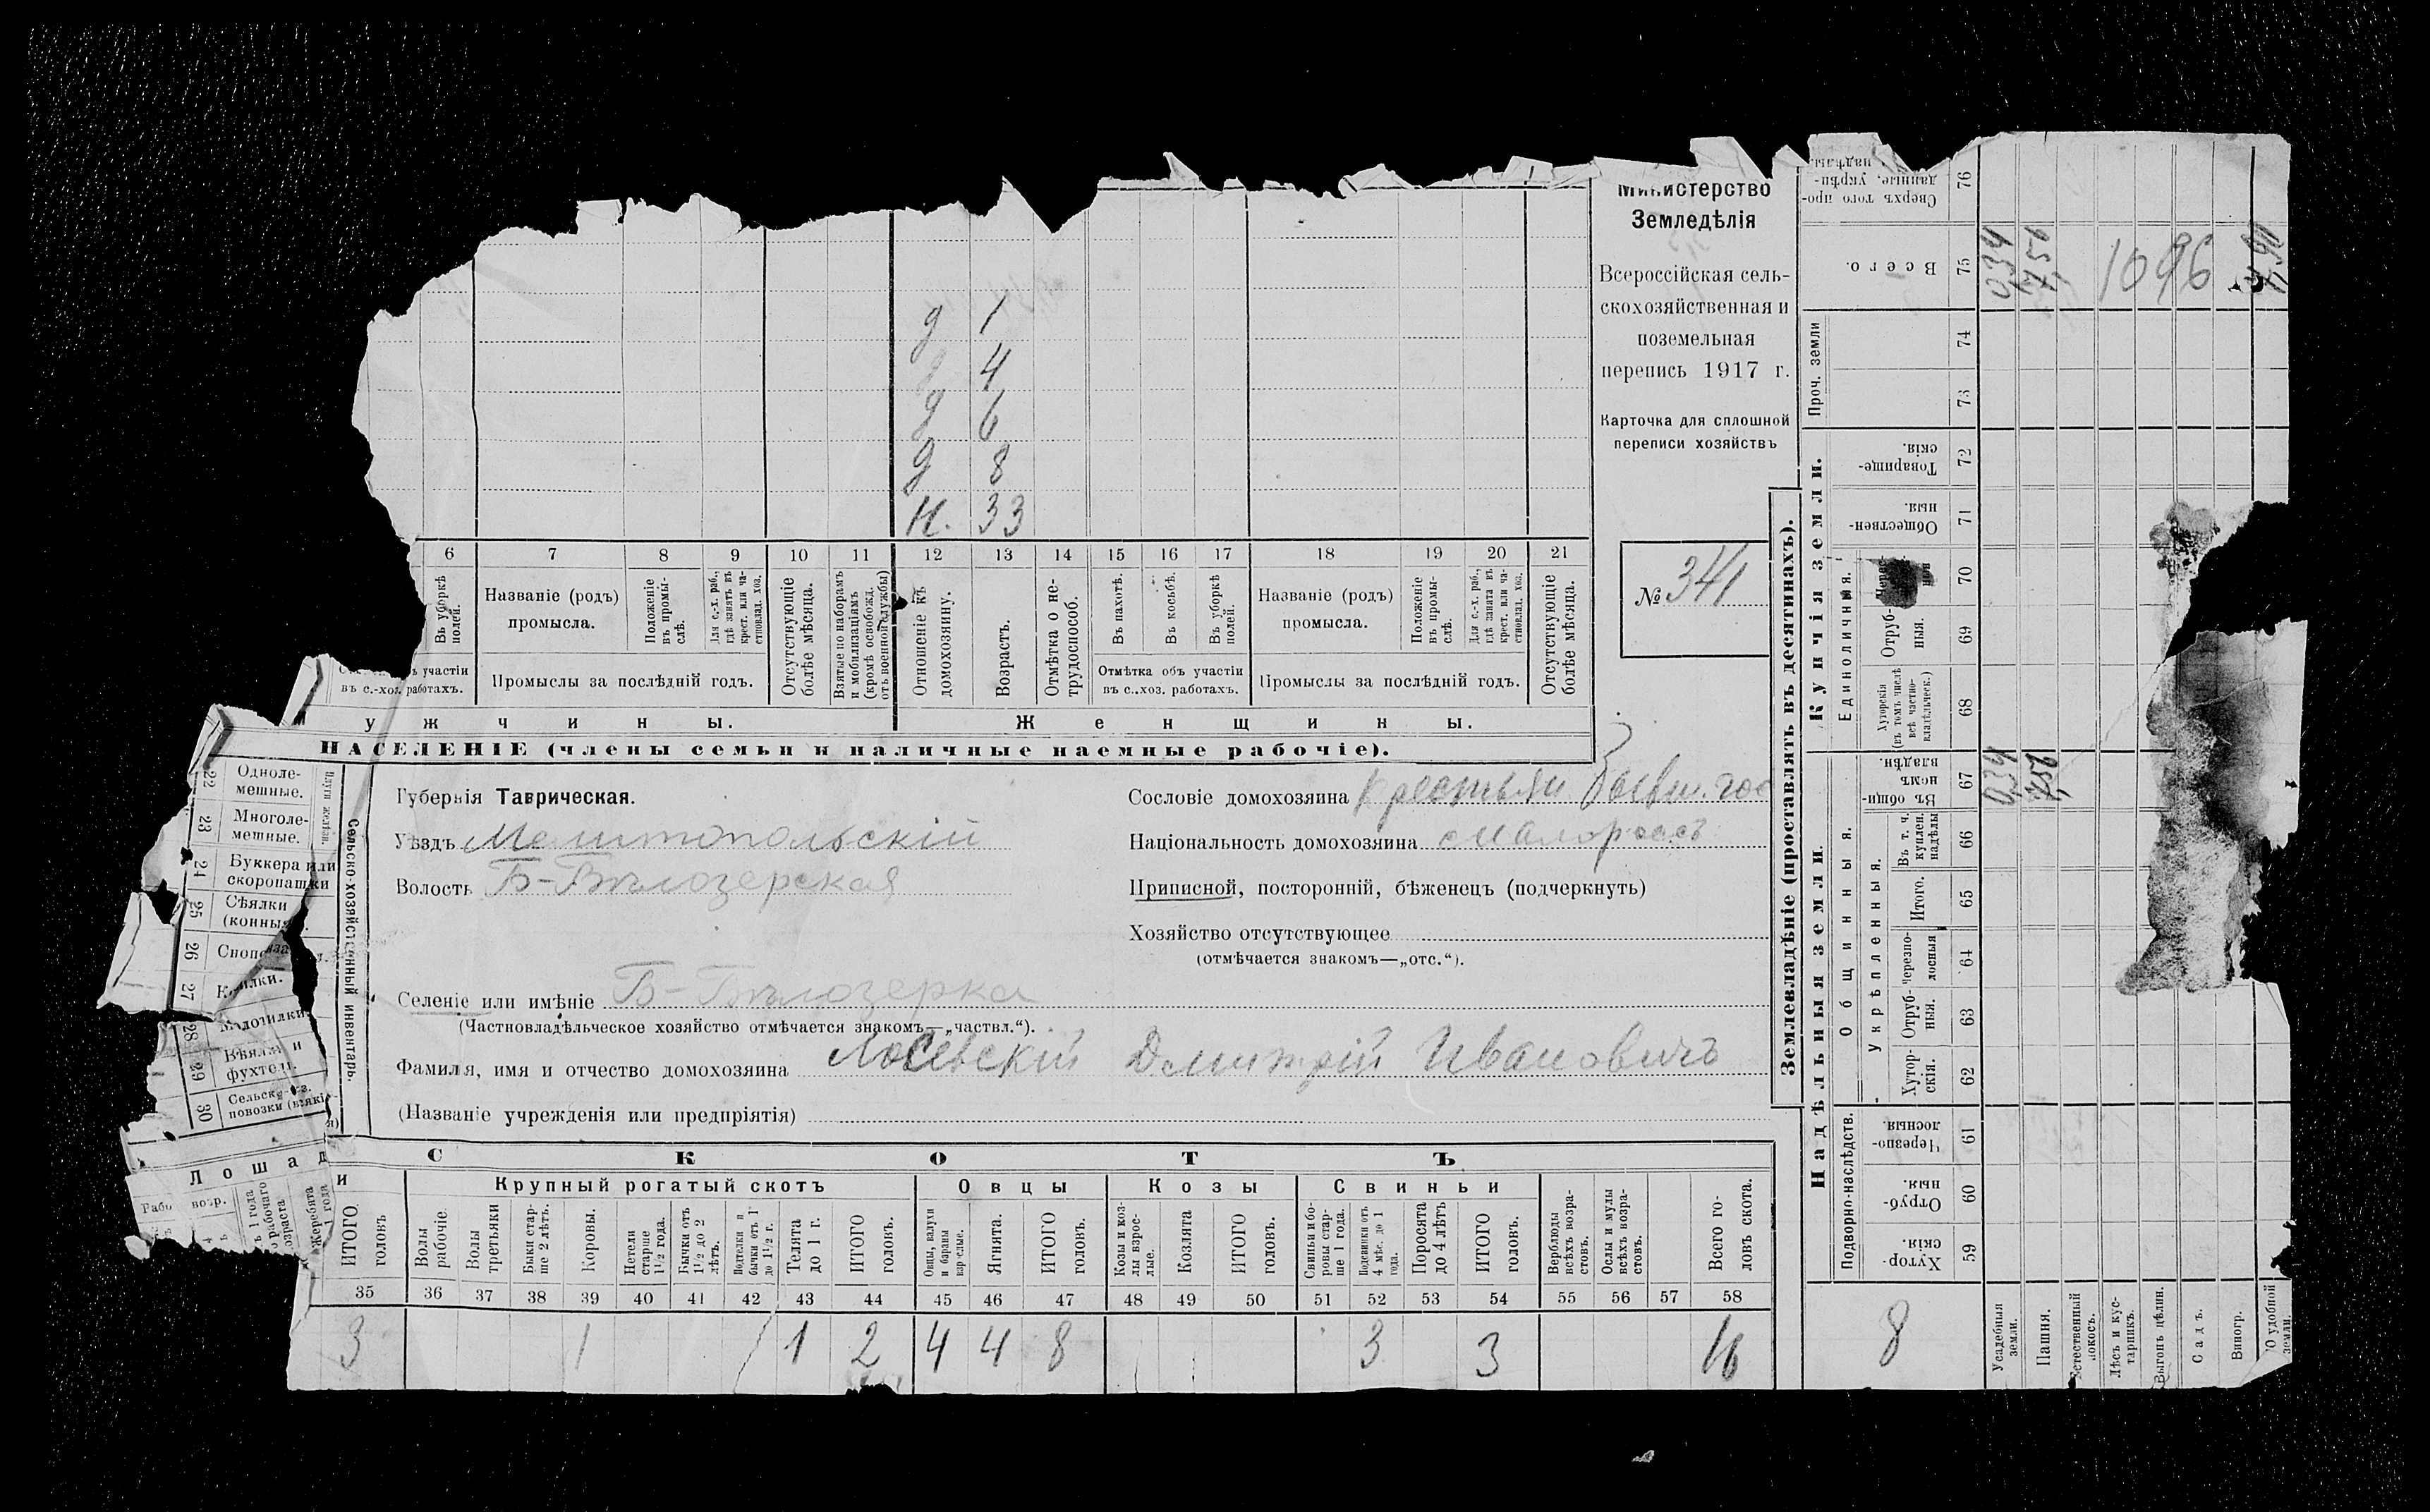 Министерство
Земледѣлія
Всероссійская сель-
скохозяйственная и
поземельная
перепись 1917 г.
Карточка для сплошной
переписи хозяйствъ
№ 341
д 1
д 4
д 6
д 8
Н. 33
6 7 8 9 10 11 12 13 14 15 16 17 18 19 20 21
Въ уборкѣ полей.
Названіе (родъ) промысла.
Положеніе въ промы-слѣ.
Для с.-х. раб., гдѣ занятъ въ крест. или ча-стновлад. хоз.
Отсутствующіе болѣе мѣсяца.
Взятые по наборамъ и мобилизаціямъ (кромѣ освобожд. отъ военной службы)
Отношеніе къ домохозяину.
Возрастъ.
Отмѣтка о не-трудоспособ.
Въ пахотѣ.
Въ косьбѣ.
Въ уборкѣ полей.
Названіе (родъ) промысла.
Положеніе въ промы-слѣ.
Для с.-х. раб., гдѣ занята въ крест. или ча-стновлад. хоз.
Отсутствующіе болѣе мѣсяца.
участіи
въ с.-хоз. работахъ.
Промыслы за послѣдній годъ.
Отмѣтка объ участіи
въ с.-хоз. работахъ.
Промыслы за послѣдній годъ.
у ж ч и н ы.
Ж е н щ и н ы.
НАСЕЛЕНІЕ (члены семьи и наличные наемные рабочіе).
Сельско-хозяйственный инвентарь.
22 Одноле-мешные.
23 Многоле-мешные.
24 Буккера или скоропашки
25 Сѣялки (конныя).
26
27 Косилки.
28 Молотилки
29 Вѣялки и фухтели.
30 Сельско-хоз. повозки (всякія)
Губернія Таврическая.
Уѣздъ Мелитопольскій
Волость Б-Бѣлозерская
Селеніе или имѣніе Б-Бѣлозерка
(Частновладѣльческое хозяйство отмѣчается знакомъ—„частвл.“).
Сословіе домохозяина Крестьян бывш. гос
Національность домохозяина малороссъ
Приписной, посторонній, бѣженецъ (подчеркнуть)
Хозяйство отсутствующее
(отмѣчается знакомъ—„отс.“).
Фамилія, имя и отчество домохозяина Лосевскій Дмитрій Ивановичъ
(Названіе учрежденія или предпріятія)
С К О Т Ъ
Лошади
Крупный рогатый скотъ
Овцы
Козы
Свиньи
ИТОГО головъ
Волы рабочіе.
Волы третьяки
Быки стар-ше 2 лѣтъ.
Коровы.
Нетели старше 1½ года.
Бычки отъ 1½ до 2 лѣтъ.
Телята до 1 г.
ИТОГО головъ.
Овцы, валухи и бараны взрослые.
Ягнята.
ИТОГО головъ.
Козы и коз-лы взрос-лые.
Козлята
ИТОГО головъ.
Свиньи и бо-ровы стар-ше 1 года.
Подсвинки отъ 4 мѣс. до 1 года.
Поросята до 4 лѣтъ
ИТОГО головъ.
Верблюды всѣхъ возра-стовъ.
Ослы и мулы всѣхъ возра-стовъ.
Всего го-ловъ скота.
35 36 37 38 39 40 41 42 43 44 45 46 47 48 49 50 51 52 53 54 55 56 57 58
3 1 1 2 4 4 8 3 3 16
Землевладѣніе (проставлять въ десятинахъ).
Надѣльныя земли
Купчія земли.
Проч. земли
Подворно-наслѣдств.
Общинныя.
Укрѣпленныя.
Единоличныя.
59 Хутор-скія.
60 Отруб-ныя.
61 Черезпо-лосныя.
62 Хутор-скія.
63 Отруб-ныя.
64 Черезпо-лосныя
65 Итого.
66 Въ т. ч. куплен. надѣлы
67 Въ общи-номъ владѣн.
68 Хуторскія (въ томъ числѣ всѣ частно-владѣльческ.)
69 Отруб-ныя.
70
71 Обществен-ныя.
72 Товарище-скія.
73
74
75 Всего.
76 Сверхъ того про-данные, укрѣп- надѣлы
8
Усадебныя земли.
Пашня.
Естественный покосъ.
Лѣсъ и кус-тарникъ.
Выгонъ цѣлин.
Садъ.
Виногр.
удобной земли.
034
034
1096